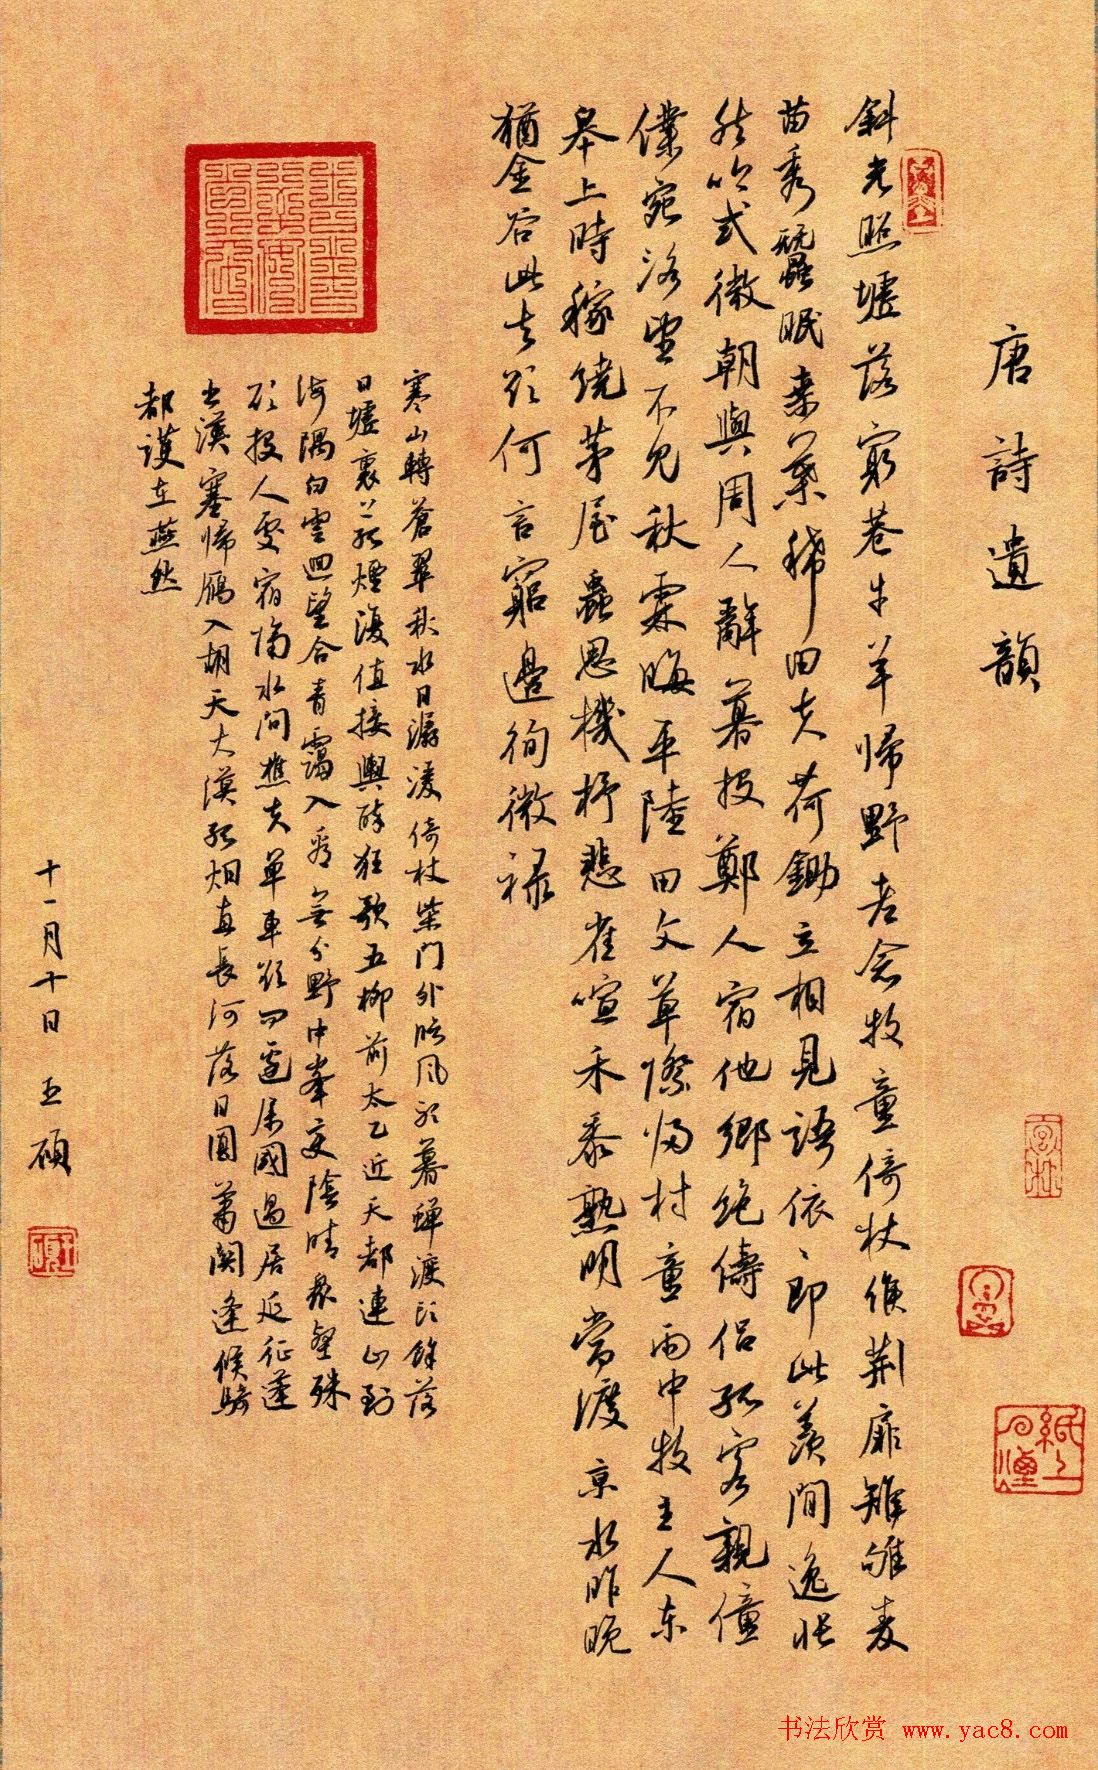 唐詩遺韻
斜光照墟落窮巷牛羊帰野老念牧童倚杖候荊扉雉雊麦
苗秀蠶眠桒葉稀田夫荷鋤立相見語依、即此羨閒逸悵
然吟式微朝與周人辭暮投鄭人宿他鄉絶儔侶孤客親僮
僕宛洛望不見秋霖晦平陸田父草際歸村童雨中牧主人东
皋上時稼繞茅屋蟲思機杼悲雀喧禾黍熟明當渡京水昨晚
猶金谷此去欲何言窮邊徇微祿
寒山轉蒼翠秋水日潺湲倚杖柴門外臨風聽暮蟬渡頭餘落
日墟裏上孤煙復值接輿醉狂歌五柳前太乙近天都連山到
海隅白雲迴望合青靄入看無分野中峯變陰晴衆壑殊
欲投人處宿隔水問樵夫單車欲問邊屬國過居延征蓬
出漢塞帰雁入胡天大漠孤烟直長河落日圓蕭關逢候騎
都護在燕然
十一月十日 王碩
书法欣赏 www.yac8.com